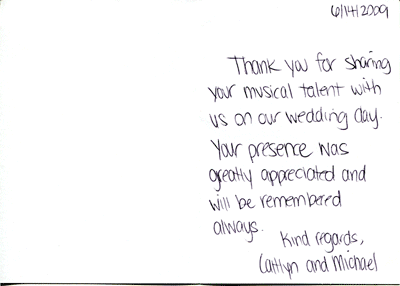 6/14/2009
Thank you for sharing
your musical talent with
us on our wedding day.
Your presence was
greatly appreciated and
will be remembered
always.
Kind regards,
Caitlyn and Michael